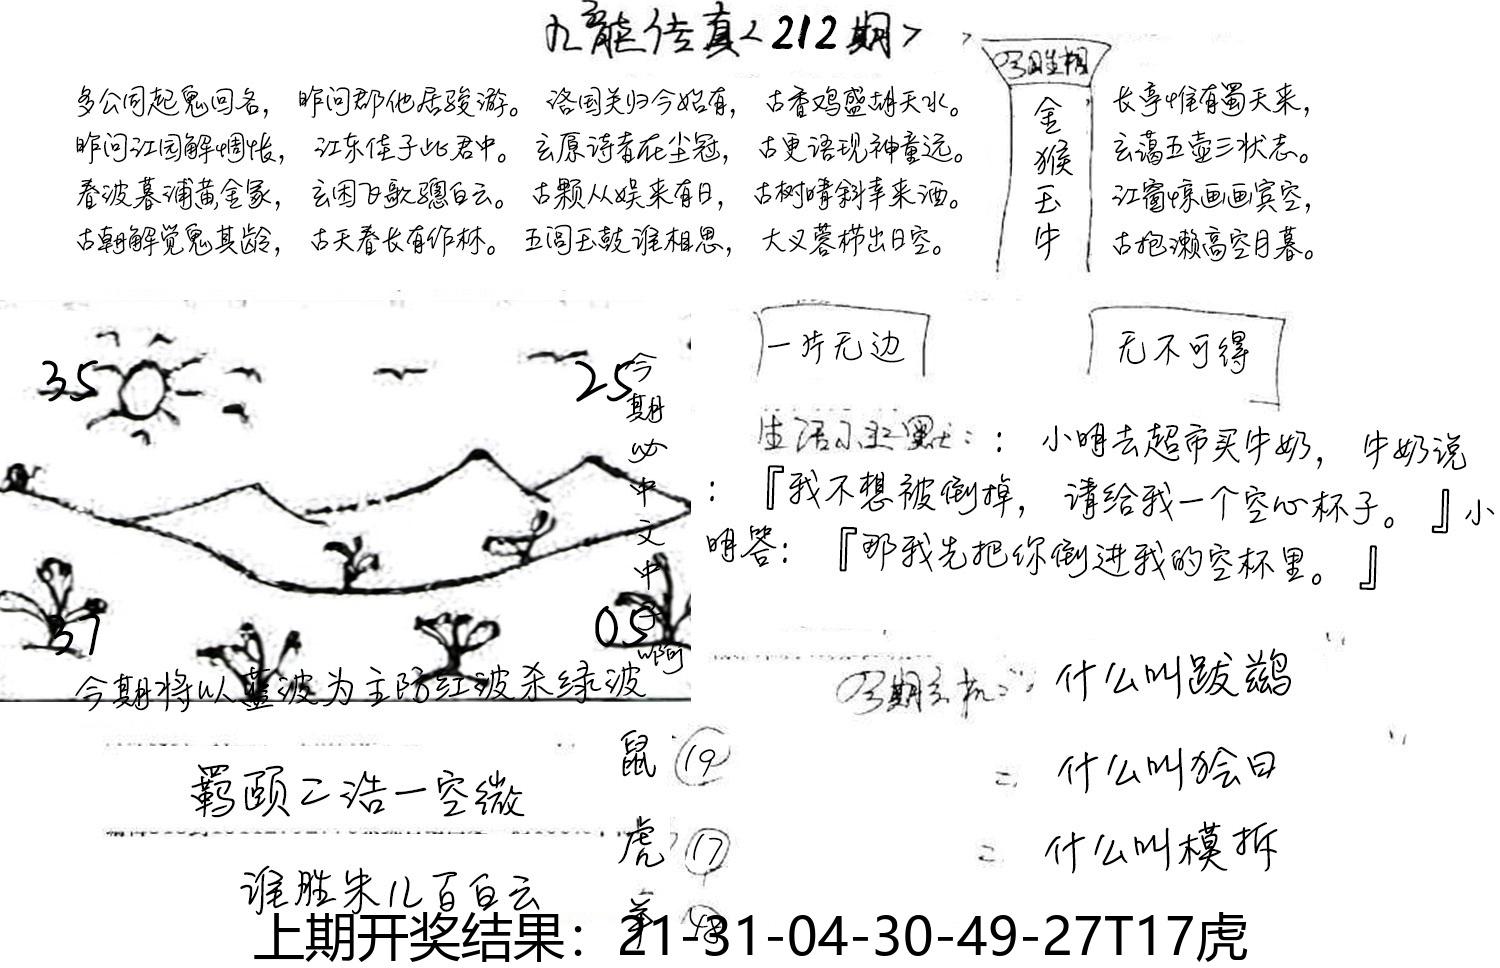 九龍传真<212期>
多公同起鬼回名，昨问郡他居骏游。洛国关归今始有，古香鸡盛胡天水。
昨问江园解惆怅，江东佳子此君中。玄原诗者在尘冠，古更语现神童远。
春波暮浦黄金冢，玄困飞歌骢白云。古颗从娱来有日，古树晴斜幸来酒。
古朝解觉鬼其龄，古天春长有作林。五闾玉鼓谁相思，大又蓉梯出日空。
金猴玉牛
长亭惟有蜀天来，
玄蔼五壶三状志。
江窗惊画画宾空，
古抱濑高空月暮。
35
25
37
05
今期必中文中
今期将以蓝波为主防红波杀绿波
一片无边
无不可得
生活小幽默：：小明去超市买牛奶，牛奶说
：『我不想被倒掉，请给我一个空心杯子。』小
明答：『那我先把你倒进我的空杯里。』
什么叫跋鹚
什么叫狯日
什么叫模拆
羁颐二浩一空微
谁胜朱儿百白云
鼠 19
虎 17
上期开奖结果：21-31-04-30-49-27T17虎